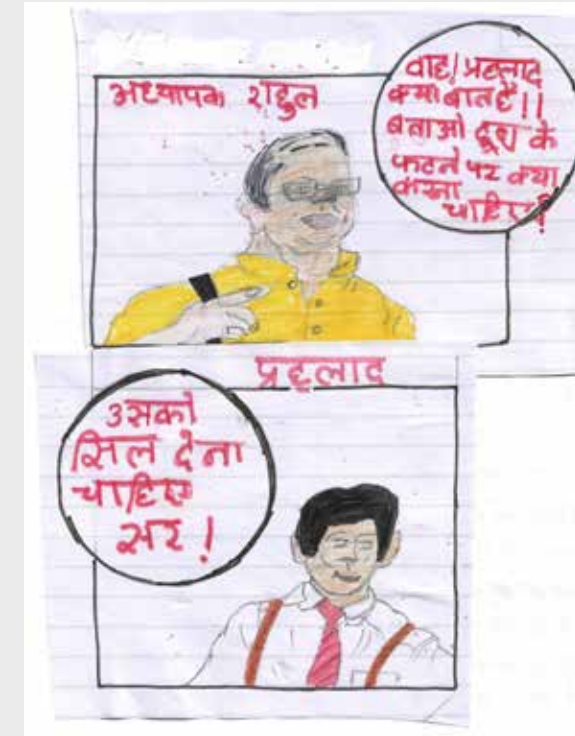 अध्यापक राहुल
वाह! प्रहलाद
क्या बात है!!
बताओ दूध के
फटने पर क्या
करना
चाहिए?
प्रहलाद
उसको
सिल देना
चाहिए
सर!